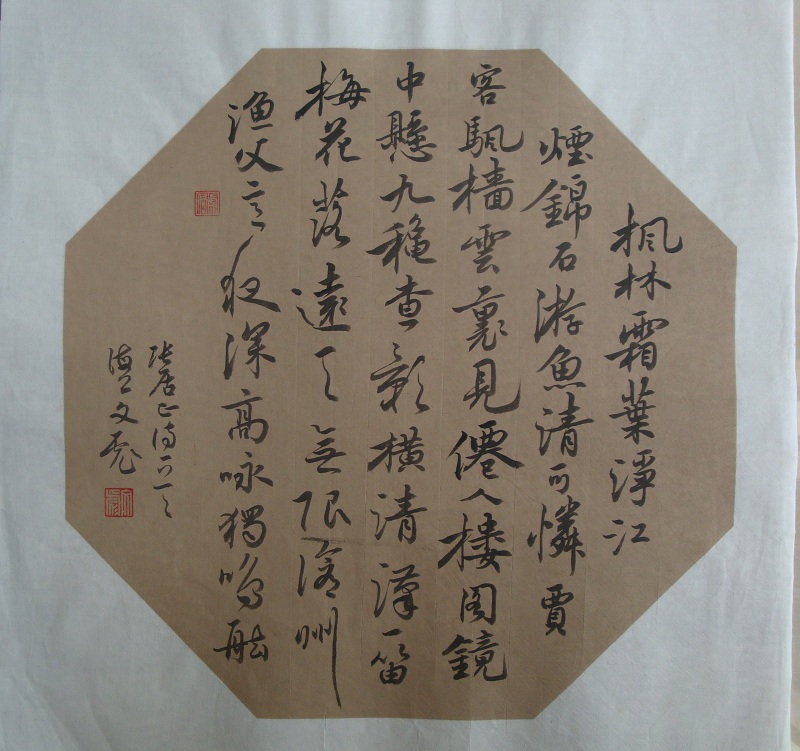 楓林霜葉淨江
煙錦石游魚清可憐賈
客颿檣雲裏見僊人樓閣鏡
中懸九穐查影橫清漢一笛
梅花落遠天無限滄洲
漁父意夜深高詠獨鳴舷
張居正詩
文彪